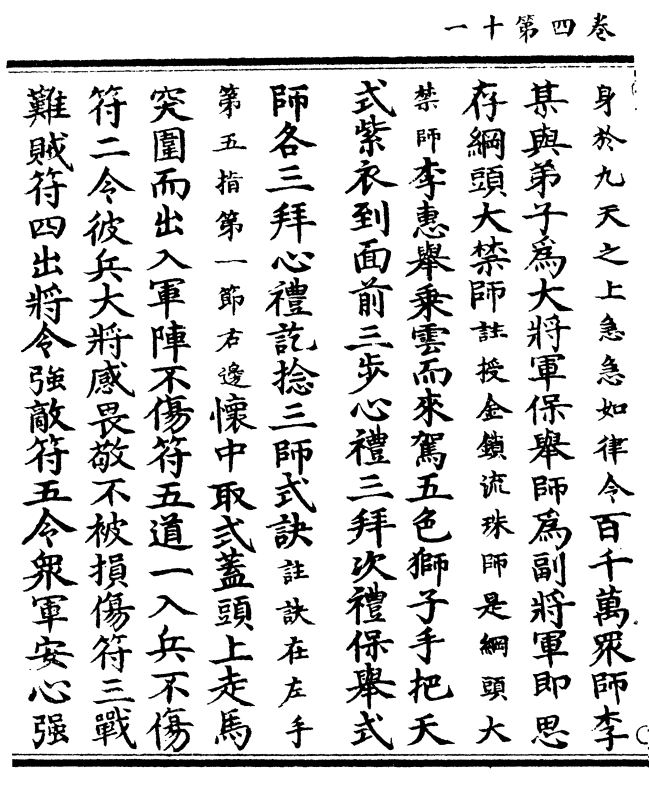 卷四第十一
身於九天之上急急如律令百千萬眾師李
某與弟子爲大將軍保舉師爲副將軍即思
存綱頭大禁師註授金鎖流珠師是綱頭大
禁師李惠舉乗雲而來駕五色獅子手把天
式紫衣到面前三步心禮三拜次禮保舉式
師各三拜心禮訖捻三師式訣註訣在左手
第五指第一節右邊懷中取式蓋頭上走馬
突圍而出入軍陣不傷符五道一入兵不傷
符二令彼兵大將感畏敬不被損傷符三戰
難賊符四出將令強敵符五令眾軍安心强